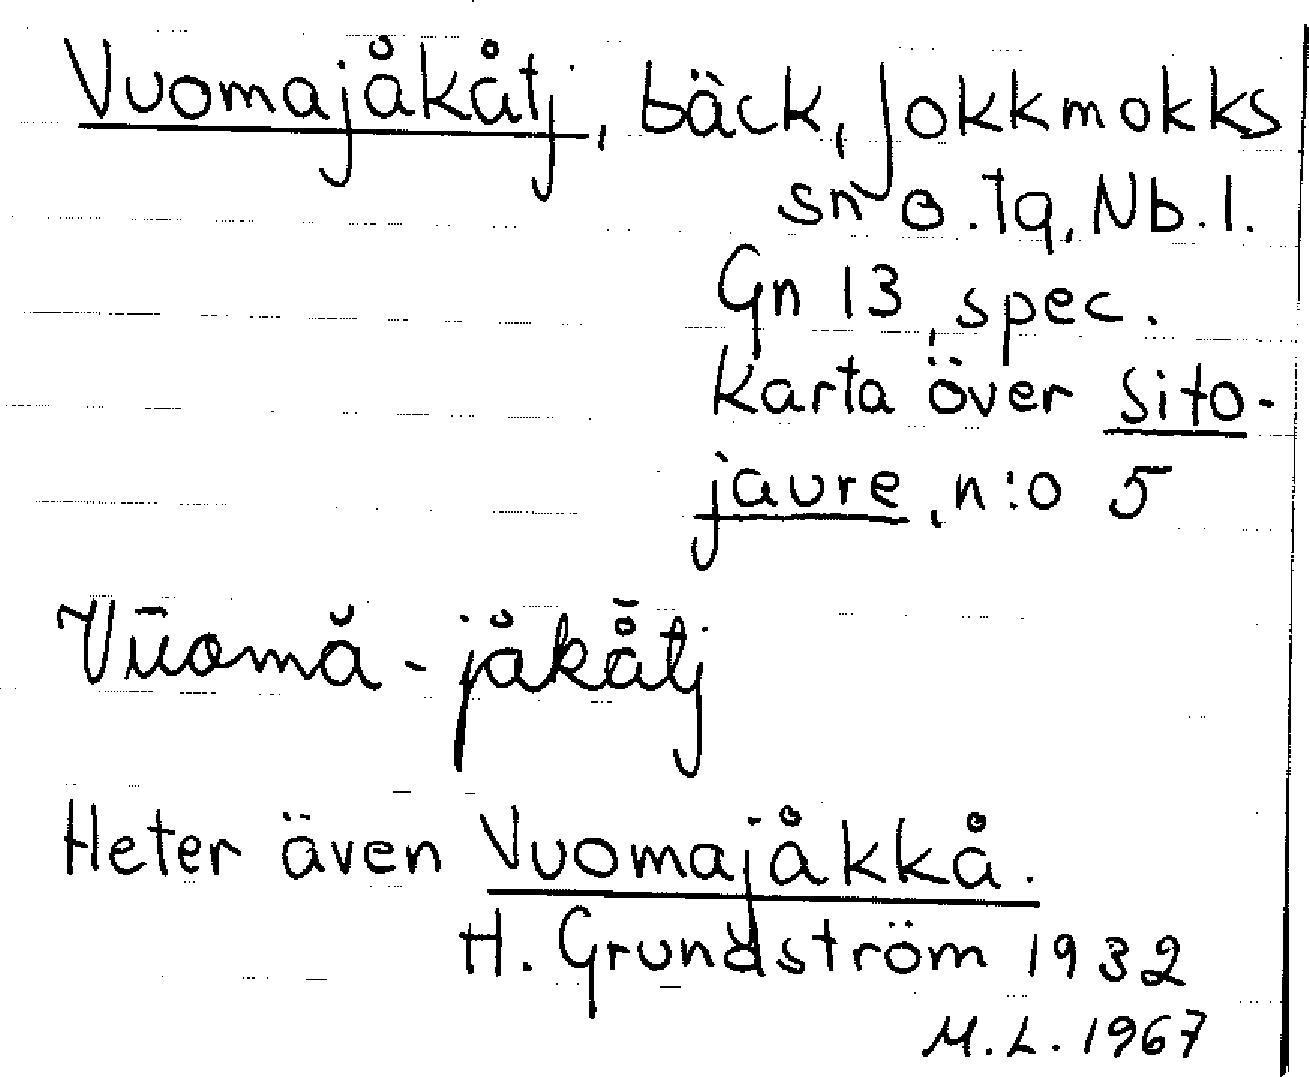 Vuomajåkåtj, bäck, Jokkmokks
sn o. tg, Nb. l.
Gn 13, spec.
karta över Sito-
jaure, n:o 5
Vūomă - jåkå̄tj
Heter även Vuomajåkkå.
H. Grundström 1932
M. L. 1967